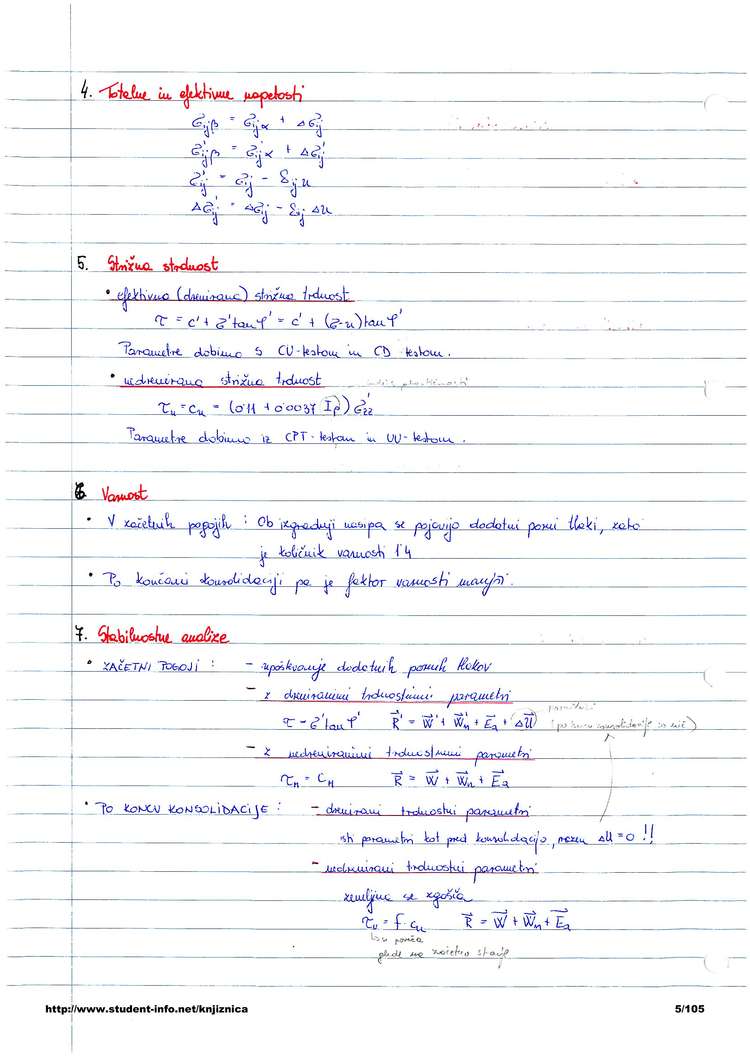 4. Totalne in efektivne napetosti
σijβ = σijα + Δσij
σ'ijβ = σ'ijα + Δσ'ij
σ'ij = σij - δij u
Δσ'ij = Δσij - δij Δu
5. Strižna strdnost
• efektivna (drenirana) strižna trdnost
τ = c' + σ' tan φ' = c' + (σ-u) tan φ'
Parametre dobimo s CU-testom in CD testom.
• nedrenirana strižna trdnost
indeks plastičnosti
τu = cu = (0'11 + 0'0037 Ip) σ'22
Parametre dobimo iz CPT-testom in UU-testom.
6 Varnost
• V začetnih pogojih : Ob izgradnji nasipa se pojavijo dodatni porni tlaki, zato
je količnik varnosti 1'4
• Po končani konsolidaciji pa je faktor varnosti manjši.
7. Stabilnostne analize
• ZAČETNI POGOJI : - upoštevanje dodatnih pornih tlakov
- z dreniranimi trdnostnimi parametri
τ = σ' tan φ' R' = W' + W'n + Ea + ΔU (po koncu konsolidacije so nič)
- z nedreniranimi trdnostnimi parametri
τu = cu R = W + Wn + Ea
• PO KONCU KONSOLIDACIJE : - drenirani trdnostni parametri
isti parametri kot pred konsolidacijo, razen ΔU = 0 !!
- nedrenirani trdnostni parametri
zemljina se zgošča
τu = f · cu R = W + Wn + Ea
se poveča
glede na začetno stanje
http://www.student-info.net/knjiznica 5/105